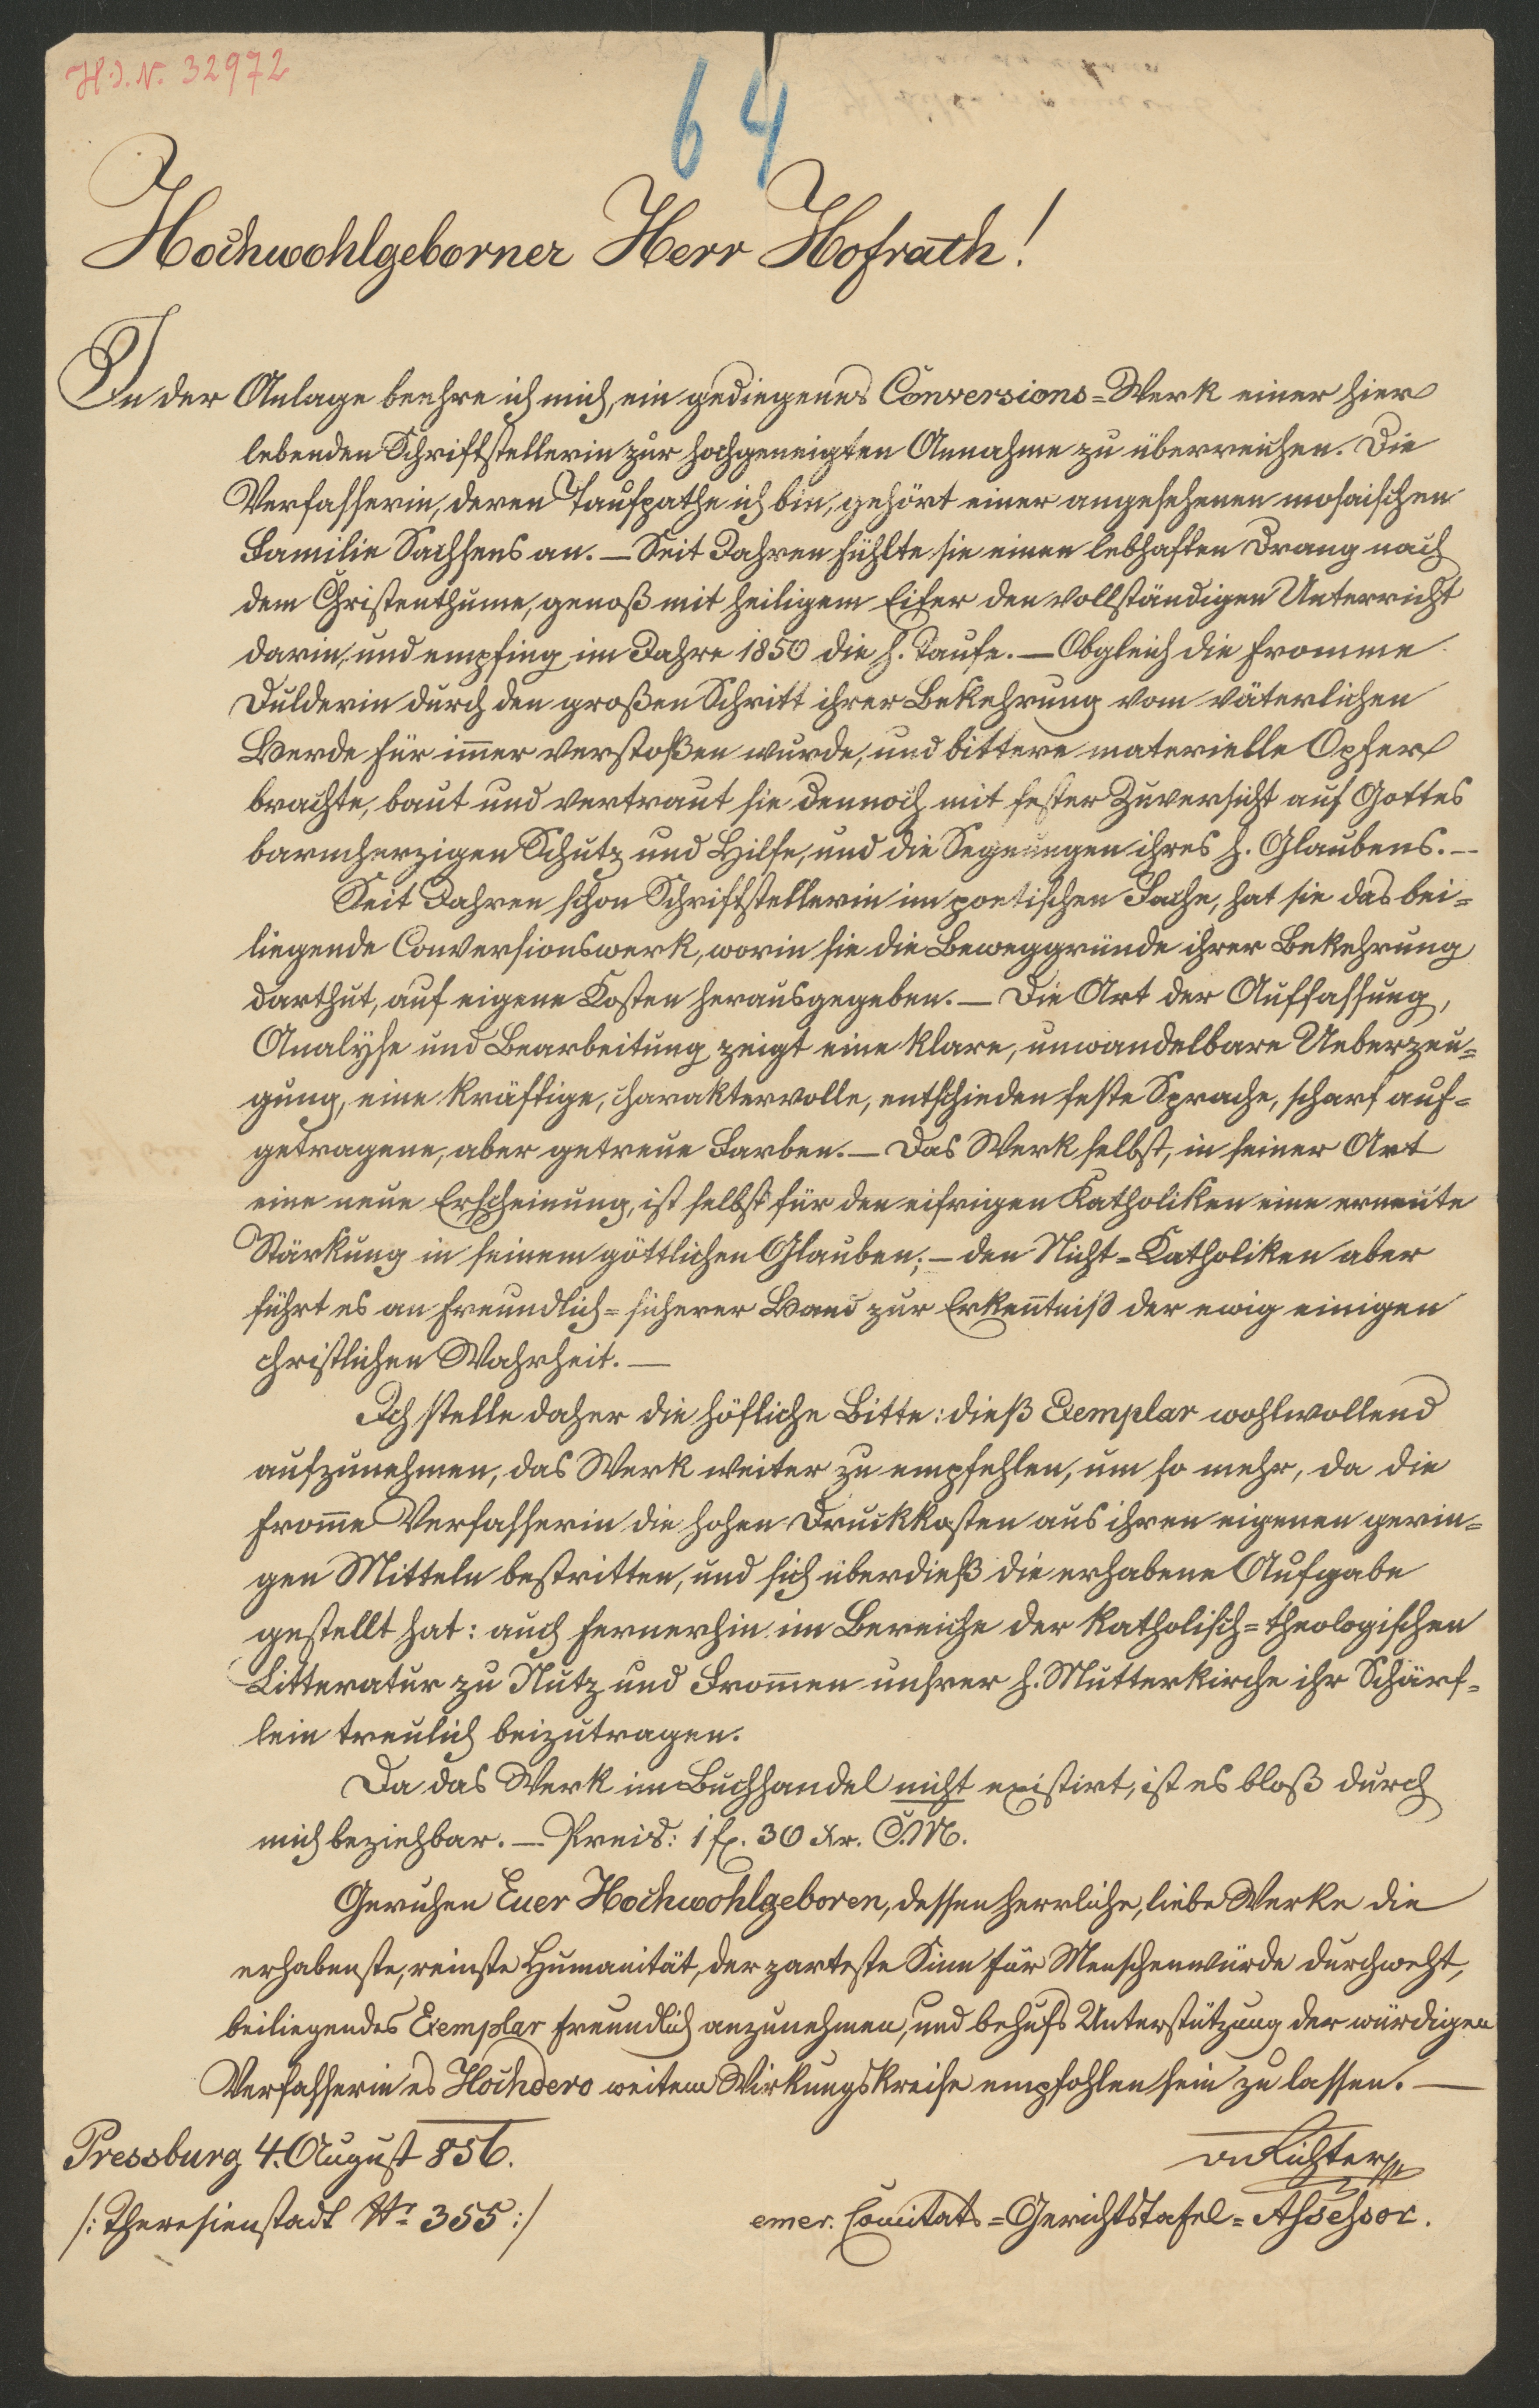 H.I.N. 32972
64
Hochwohlgeborner Herr Hofrath!
In der Anlage beehre ich mich, ein gediegenes Conversions=Werk einer hier
lebenden Schriftstellerin zur hochgeneigten Annahme zu überreichen. Die
Verfasserin, deren Taufpathe ich bin, gehört einer angesehenen mosaischen
Familie Sachsens an. — Seit Jahren fühlte sie einen lebhaften Drang nach
dem Christenthume, genoß mit heiligem Eifer den vollständigen Unterricht
darin, und empfing im Jahre 1850 die h. Taufe. — Obgleich die fromme
Dulderin durch den großen Schritt ihrer Bekehrung vom väterlichen
Herde für im̅er verstoßen wurde, und bittere materielle Opfer
brachte, baut und vertraut sie dennoch mit fester Zuversicht auf Gottes
barmherzigen Schutz und Hilfe, und die Segnungen ihres h. Glaubens. —
Seit Jahren schon Schriftstellerin im poetischen Fache, hat sie das bei=
liegende Conversionswerk, worin sie die Beweggründe ihrer Bekehrung
darthut, auf eigene Kosten herausgegeben. — Die Art der Auffassung,
Analyse und Bearbeitung zeigt eine klare, unwandelbare Ueberzeu=
gung, eine kräftige, charaktervolle, entschieden feste Sprache, scharf auf=
getragene, aber getreue Farben. — Das Werk selbst, in seiner Art
eine neue Erscheinung, ist selbst für den eifrigen Katholiken eine erneute
Stärkung in seinem göttlichen Glauben; — den Nicht=Katholiken aber
führt es an freundlich=sicherer Hand zur Erken̅tniß der ewig einigen
christlichen Wahrheit. —
Ich stelle daher die höfliche Bitte: dieß Exemplar wohlwollend
aufzunehmen, das Werk weiter zu empfehlen, um so mehr, da die
from̅e Verfasserin die hohen Druckkosten aus ihren eigenen gerin=
gen Mitteln bestritten, und sich überdieß die erhabene Aufgabe
gestellt hat: auch fernerhin im Bereiche der katholisch=theologischen
Litteratur zu Nutz und From̅en unsrer h. Mutterkirche ihr Schärf=
lein treulich beizutragen.
Da das Werk im Buchhandel nicht existirt, ist es bloß durch
mich beziehbar. — Preis: 1 fl. 30 Kr. C.M.
Geruhen Euer Hochwohlgeboren, dessen herrliche, liebe Werke die
erhabenste, reinste Humanität, der zarteste Sinn für Menschenwürde durchweht,
beiliegendes Exemplar freundlich anzunehmen, und behufs Unterstützung der würdigen
Verfasserin es Hochdero weitem Wirkungskreise empfohlen sein zu lassen. —
Pressburg 4. August 856.
Richter
/: Theresienstadt Nr. 355 :/
emer. Comitats=Gerichtstafel=Assessor.